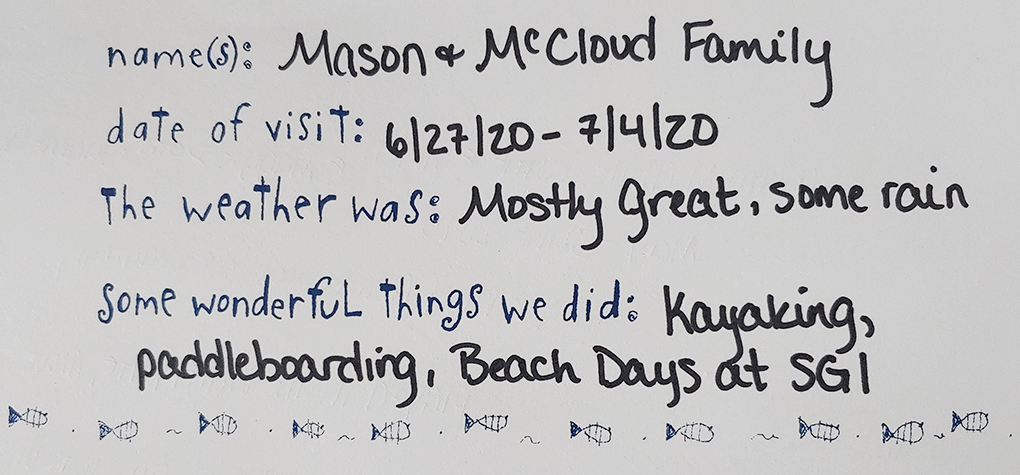 name(s): Mason & McCloud Family
date of visit: 6/27/20 - 7/4/20
The weather was: Mostly Great, some rain
some wonderful things we did: Kayaking,
paddleboarding, Beach Days at SGI